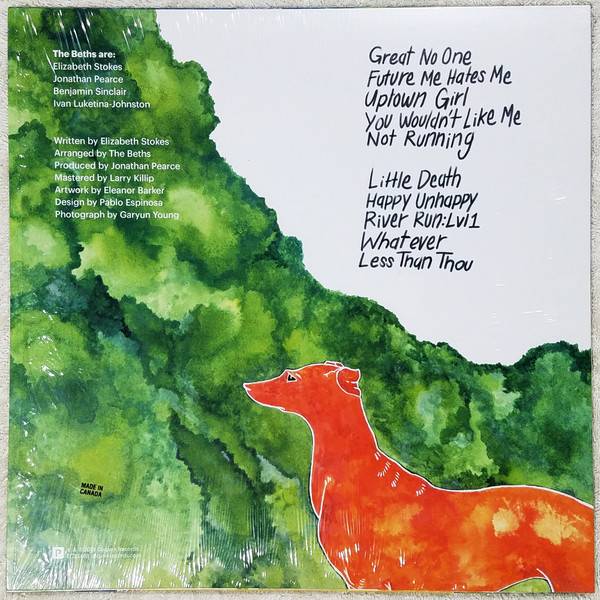 The Beths are:
Elizabeth Stokes
Jonathan Pearce
Benjamin Sinclair
Ivan Luketina-Johnston
Written by Elizabeth Stokes
Arranged by The Beths
Produced by Jonathan Pearce
Mastered by Larry Killip
Artwork by Eleanor Barker
Design by Pablo Espinosa
Photograph by Garyun Young
Great No One
Future Me Hates Me
Uptown Girl
You Wouldn't Like Me
Not Running
Little Death
Happy Unhappy
River Run:Lvl1
Whatever
Less Than Thou
MADE IN
CANADA
P
Records